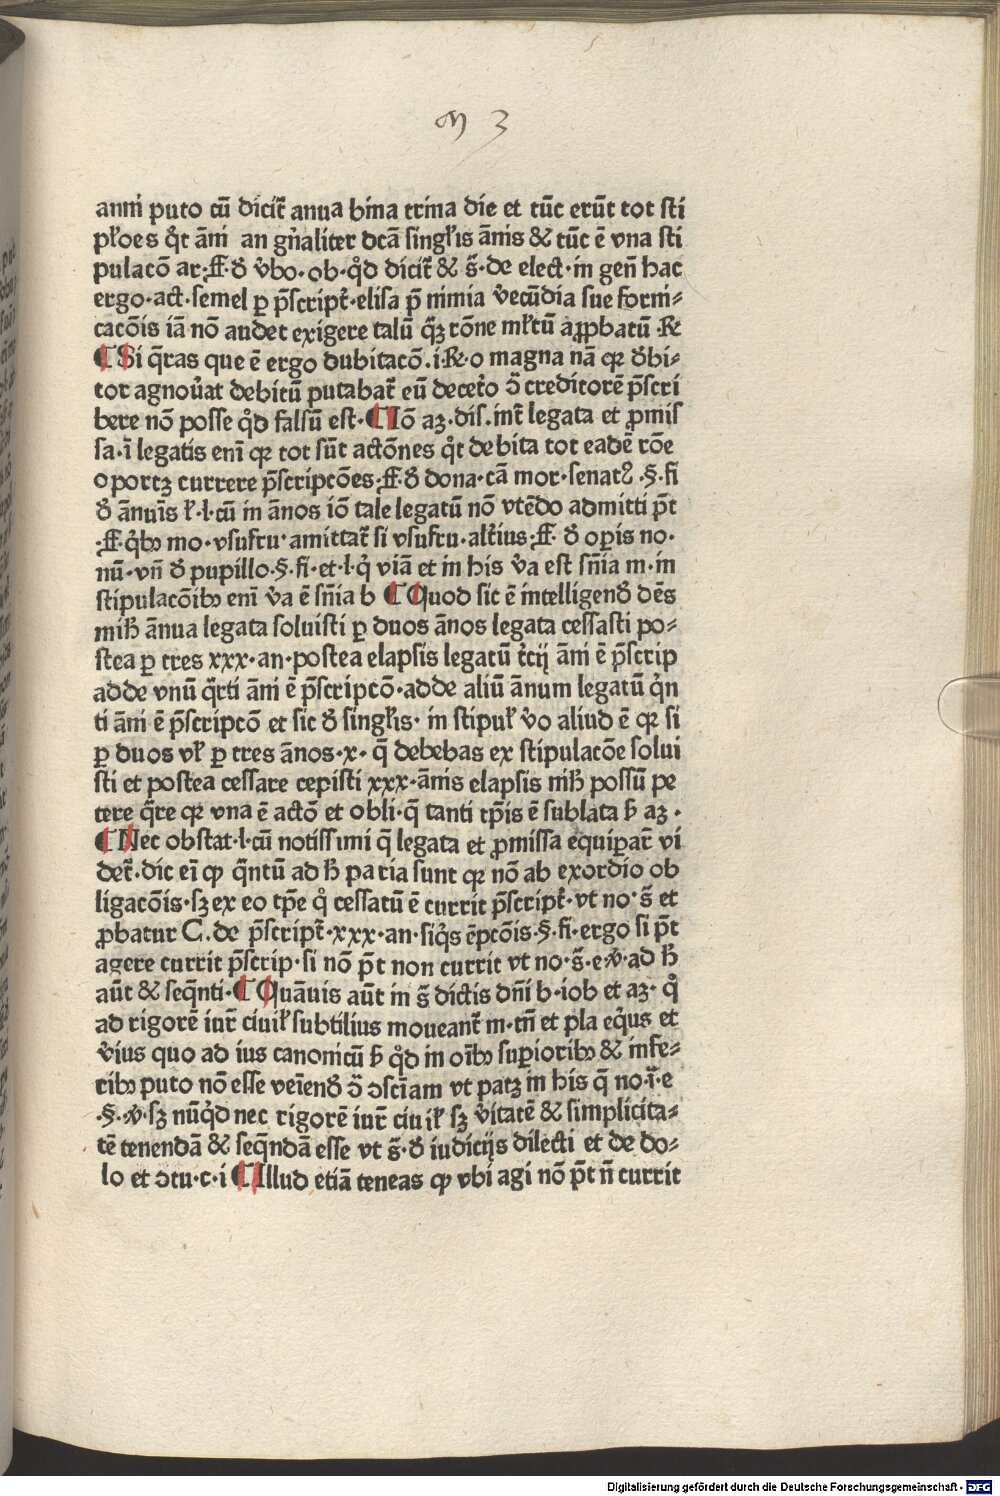 m 3
anni puto cū dicit̄ anua bina trina die et tūc erūt tot sti
pl̄oes q̊t āni an gn̄aliter dc̄a singl̄is ānis & tūc ē vna sti
pulacō ar·ff·ꝺ̄ v̄bo·ob·q̊d dicit̄ & s̄·de elect·in gen̄ hac
ergo·act·semel ꝑ p̄script̄·elisa p̄ nimia v̄ecūdia sue forni⸗
cacōis iā nō audet exigere talū q̄ꝫ rōne ml̄tū aꝓbatū ℞
¶ Si q̄ras que ē ergo dubitacō.i·℞·o magna nā qꝛ ꝺ̄bi⸗
tor agnou̓at debitū putabat̄ eū decet̓o ↄ̄ creditorē p̄scri
bere nō posse q̊d falsū est·¶ Iō aꝫ·dis.int̄ legata et ꝓmis
sa·ī legatis enī qꝛ tot sūt actōnes q̊t debita tot eadē rōe
oportꝫ currere p̄scripcōes·ff·ꝺ̄ dona·cā mor·senatꝰ·§·fi
ꝺ̄ ānuīs l̄·l·cū in ānos iō tale legatū nō vtēdo admitti p̄t
·ff·q̓bꝫ mo·vsufru·amittat̄ si vsufru·alt̓ius·ff·ꝺ̄ oꝑis no·
nū·vn̄ ꝺ̄ pupillo·§·fi·et·l·q̓ viā et in his v̓a est sn̄ia m·in
stipulacōibꝫ enī v̓a ē sn̄ia b ¶ Quod sic ē intelligenꝺ̄ dēs
mih̄ ānua legata soluisti ꝑ duos ānos legata cessasti po⸗
stea ꝑ tres xxx·an·postea elapsis legatū t̓cij āni ē p̄scrip
adde vnū q̄rti āni ē p̄scripcō·adde aliū ānum legatū q̓n
ti āni ē p̄scripcō et sic ꝺ̄ singl̄is· in stipul̄ v̓o aliud ē qꝛ si
ꝑ duos vl̄ ꝑ tres ānos·x·q̄ debebas ex stipulacōe solui
sti et postea cessare cepisti xxx·ānis elapsis mih̄ possū pe
tere q̄re qꝛ vna ē actō et obli·q̄ tanti tp̄is ē sublata h̄ aꝫ·
¶ Nec obstat·l·cū notissimi q̄ legata et ꝓmissa equiparat̄ vi
det̄·dic eī qꝙ q̄ntū ad h̄ paria sunt qꝛ nō ab exordio ob
ligacōis·sꝫ ex eo tp̄e q̊ cessatū ē currit p̄script̄·vt no·s̄ et
ꝓbatur C.de p̄script̄·xxx·an·siq̓s ēpcōis·§·fi·ergo si p̄t
agere currit p̄scrip·si nō p̄t non currit vt no·s̄·e·v̓·ad h̄
aūt & seq̄nti·¶ Quāuis aūt in s̄ dictis dn̄i b·iob et aꝫ·q̊
ad rigorē iur̄ ciuil̄ subtilius moueant̄ m·tn̄ et pla eq̓us et
v̓ius quo ad ius canonicū h̄ q̊d in oībꝫ superioribꝫ & infe⸗
ribꝫ puto nō esse veīenꝺ̄ ↄ̄ ↄscīam vt patꝫ in his q̄ no·ī·e
·§·v̓·sꝫ nūq̊d nec rigorē iur̄ ciuil̄ sꝫ v̓itatē & simplicita⸗
tē tenendā & seq̄ndā esse vt s̄·ꝺ̄ iudicijs dilecti et de do⸗
lo et ↄtu·c·i ¶ Illud etiā teneas ꝙ vbi agi nō p̄t n̄ currit
Digitalisierung gefördert durch die Deutsche Forschungsgemeinschaft - DFG